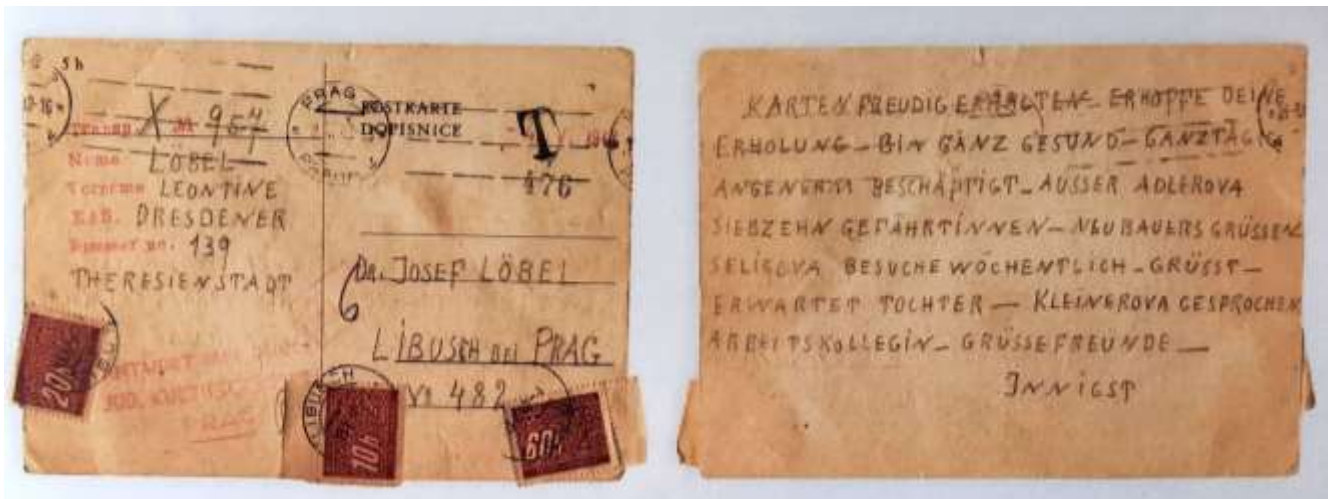 5 h
X 954
Name LÖBEL
Vorname LEONTINE
DRESDENER
Nummer no. 139
THERESIENSTADT
PRAG
POSTKARTE
DOPISNICE
T
476
6
Dr. JOSEF LÖBEL
LIBUSCH BEI PRAG
No 482
20h
LIBUSCH
10h
60h
PRAG
KARTEN FREUDIG ERHALTEN – ERHOFFE DEINE
ERHOLUNG – BIN GANZ GESUND – GANZTÄGIG
ANGENEHM BESCHÄFTIGT – AUSSER ADLEROVA
SIEBZEHN GEFÄHRTINNEN – NEUBAUERS GRÜSSEN
BESUCHE WÖCHENTLICH – GRÜSST –
ERWARTET TOCHTER – KLEINEROVA GESPROCHEN
ARBEITSKOLLEGIN – GRÜSSE FREUNDE –
INNIGST